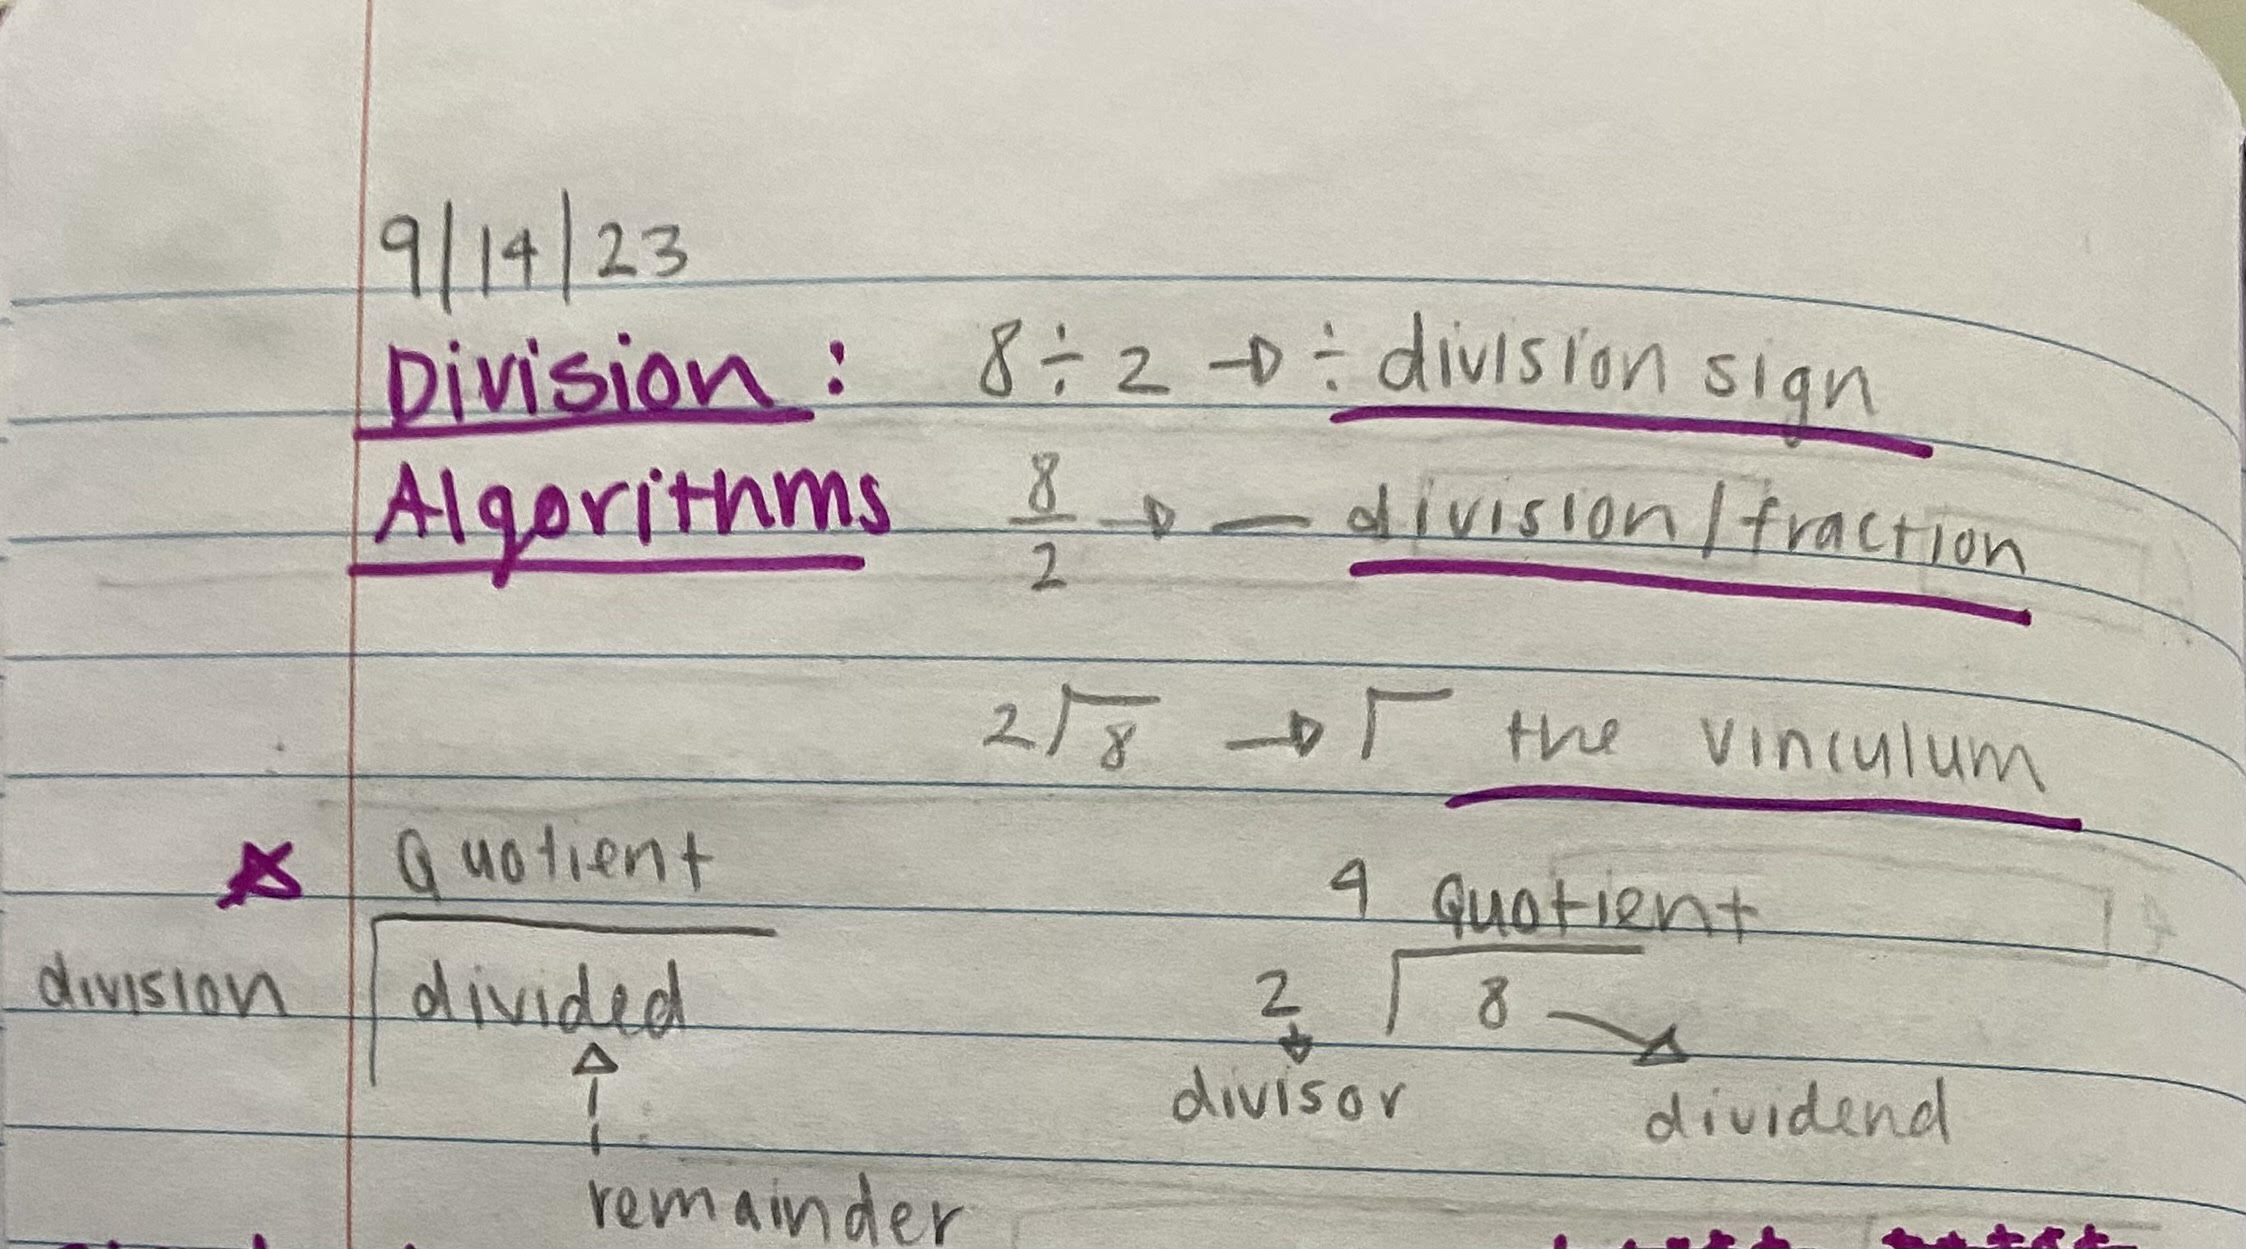 9/14/23
Division: 8 ÷ 2 → ÷ division sign
Algorithms 8/2 → — division/fraction
2⟌8 → ⟌ the vinculum
Quotient
division divided
remainder
4 Quotient
2 8
divisor dividend